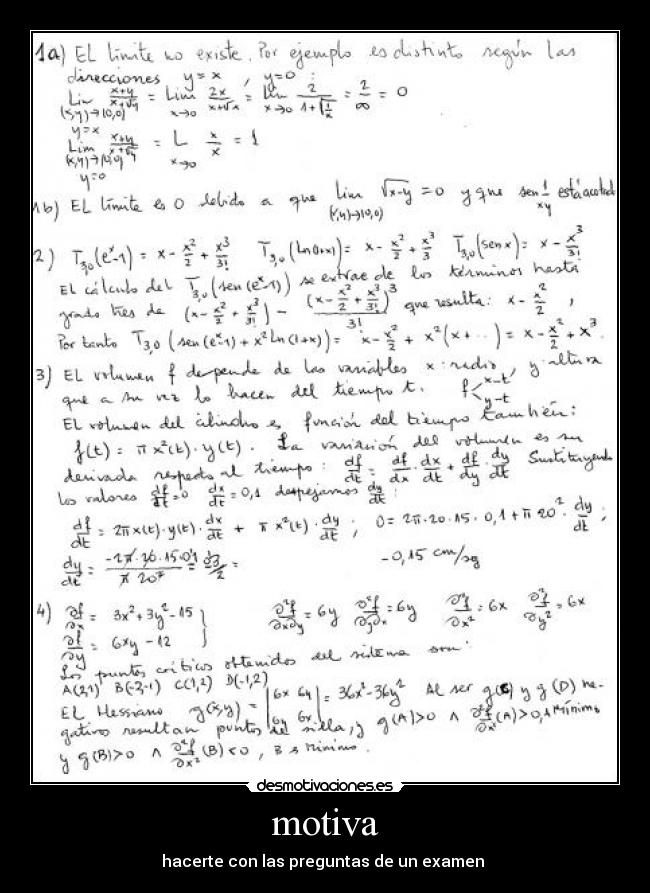 1a) EL límite no existe. Por ejemplo es distinto según las
direcciones y=x , y=0 :
Lim (x,y)→(0,0) y=x (x+y)/(x+√y) = Lim x→0 2x/(x+√x) = Lim x→0 2/(1+√(1/x)) = 2/∞ = 0
Lim (x,y)→(0,0) y=0 (x+y)/(x+√y) = L x→0 x/x = 1
1b) EL límite es 0 debido a que lim (x,y)→(0,0) √x-y = 0 y que sen 1/xy está acotada
2) T3,0(e^x-1) = x - x²/2 + x³/3! T3,0(Ln(1+x)) = x - x²/2 + x³/3 T3,0(senx) = x - x³/3!
EL cálculo del T3,0(sen(e^x-1)) se extrae de los términos hasta
grado tres de (x - x²/2 + x³/3!) - (x - x²/2 + x³/3!)³/3! que resulta: x - x²/2 ,
Por tanto T3,0(sen(e^x-1) + x² Ln(1+x)) = x - x²/2 + x²(x+...) = x - x²/2 + x³.
3) EL volumen f depende de las variables x:radio, y:altura
que a su vez lo hacen del tiempo t. f< x-t y-t
EL volumen del cilindro es función del tiempo también:
f(t) = π x²(t)·y(t). La variación del volumen es su
derivada respecto al tiempo: df/dt = df/dx · dx/dt + df/dy · dy/dt Sustituyendo
los valores df/dt = 0 dx/dt = 0,1 despejamos dy/dt :
df/dt = 2πx(t)·y(t)·dx/dt + πx²(t)·dy/dt ; 0 = 2π·20·15·0,1 + π20²·dy/dt ;
dy/dt = -2π·20·15·0,1/π20² = = -0,15 cm/sg
4) ∂f/∂x = 3x²+3y²-15 } ∂²f/∂x∂y = 6y ∂²f/∂y∂x = 6y ∂²f/∂x² = 6x ∂²f/∂y² = 6x
∂f/∂y = 6xy - 12 }
Los puntos críticos obtenidos del sistema son:
A(2,1) B(-2,-1) C(1,2) D(-1,-2)
EL Hessiano g(x,y) = |6x 6y 6y 6x| = 36x²-36y² Al ser g(C) y g(D) ne-
gativo resultan puntos de silla, y g(A)>0 ∧ ∂²f/∂x²(A)>0, A Mínimo
y g(B)>0 ∧ ∂²f/∂x²(B)<0 , B
desmotivaciones.es
motiva
hacerte con las preguntas de un examen